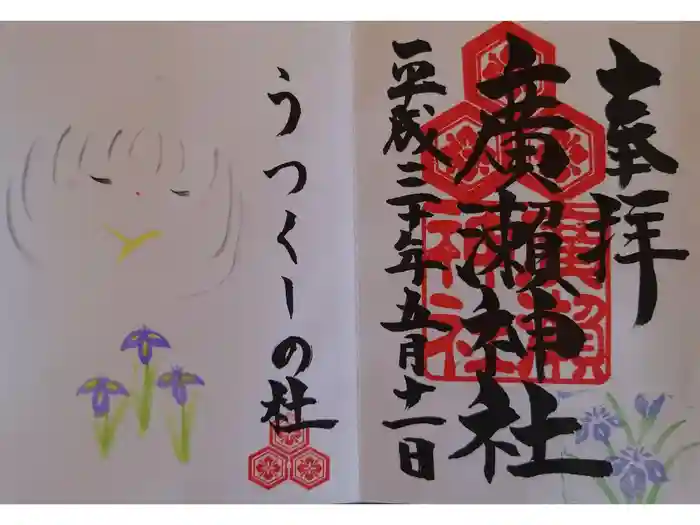 奉拝
廣瀬神社
廣瀬神社
平成三十年五月十一日
うつくしの杜